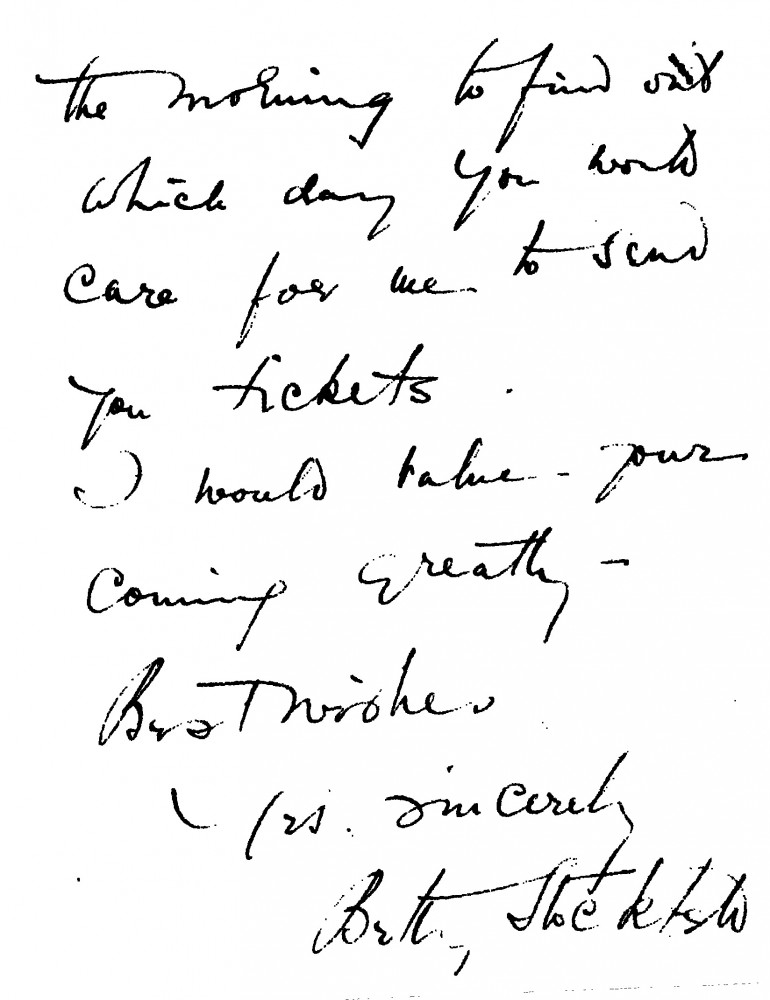 the morning to find out
which day you would
care for me to send
you tickets.
I would value - your
coming greatly -
Best wishes
Yrs. sincerely
Betty Stockton